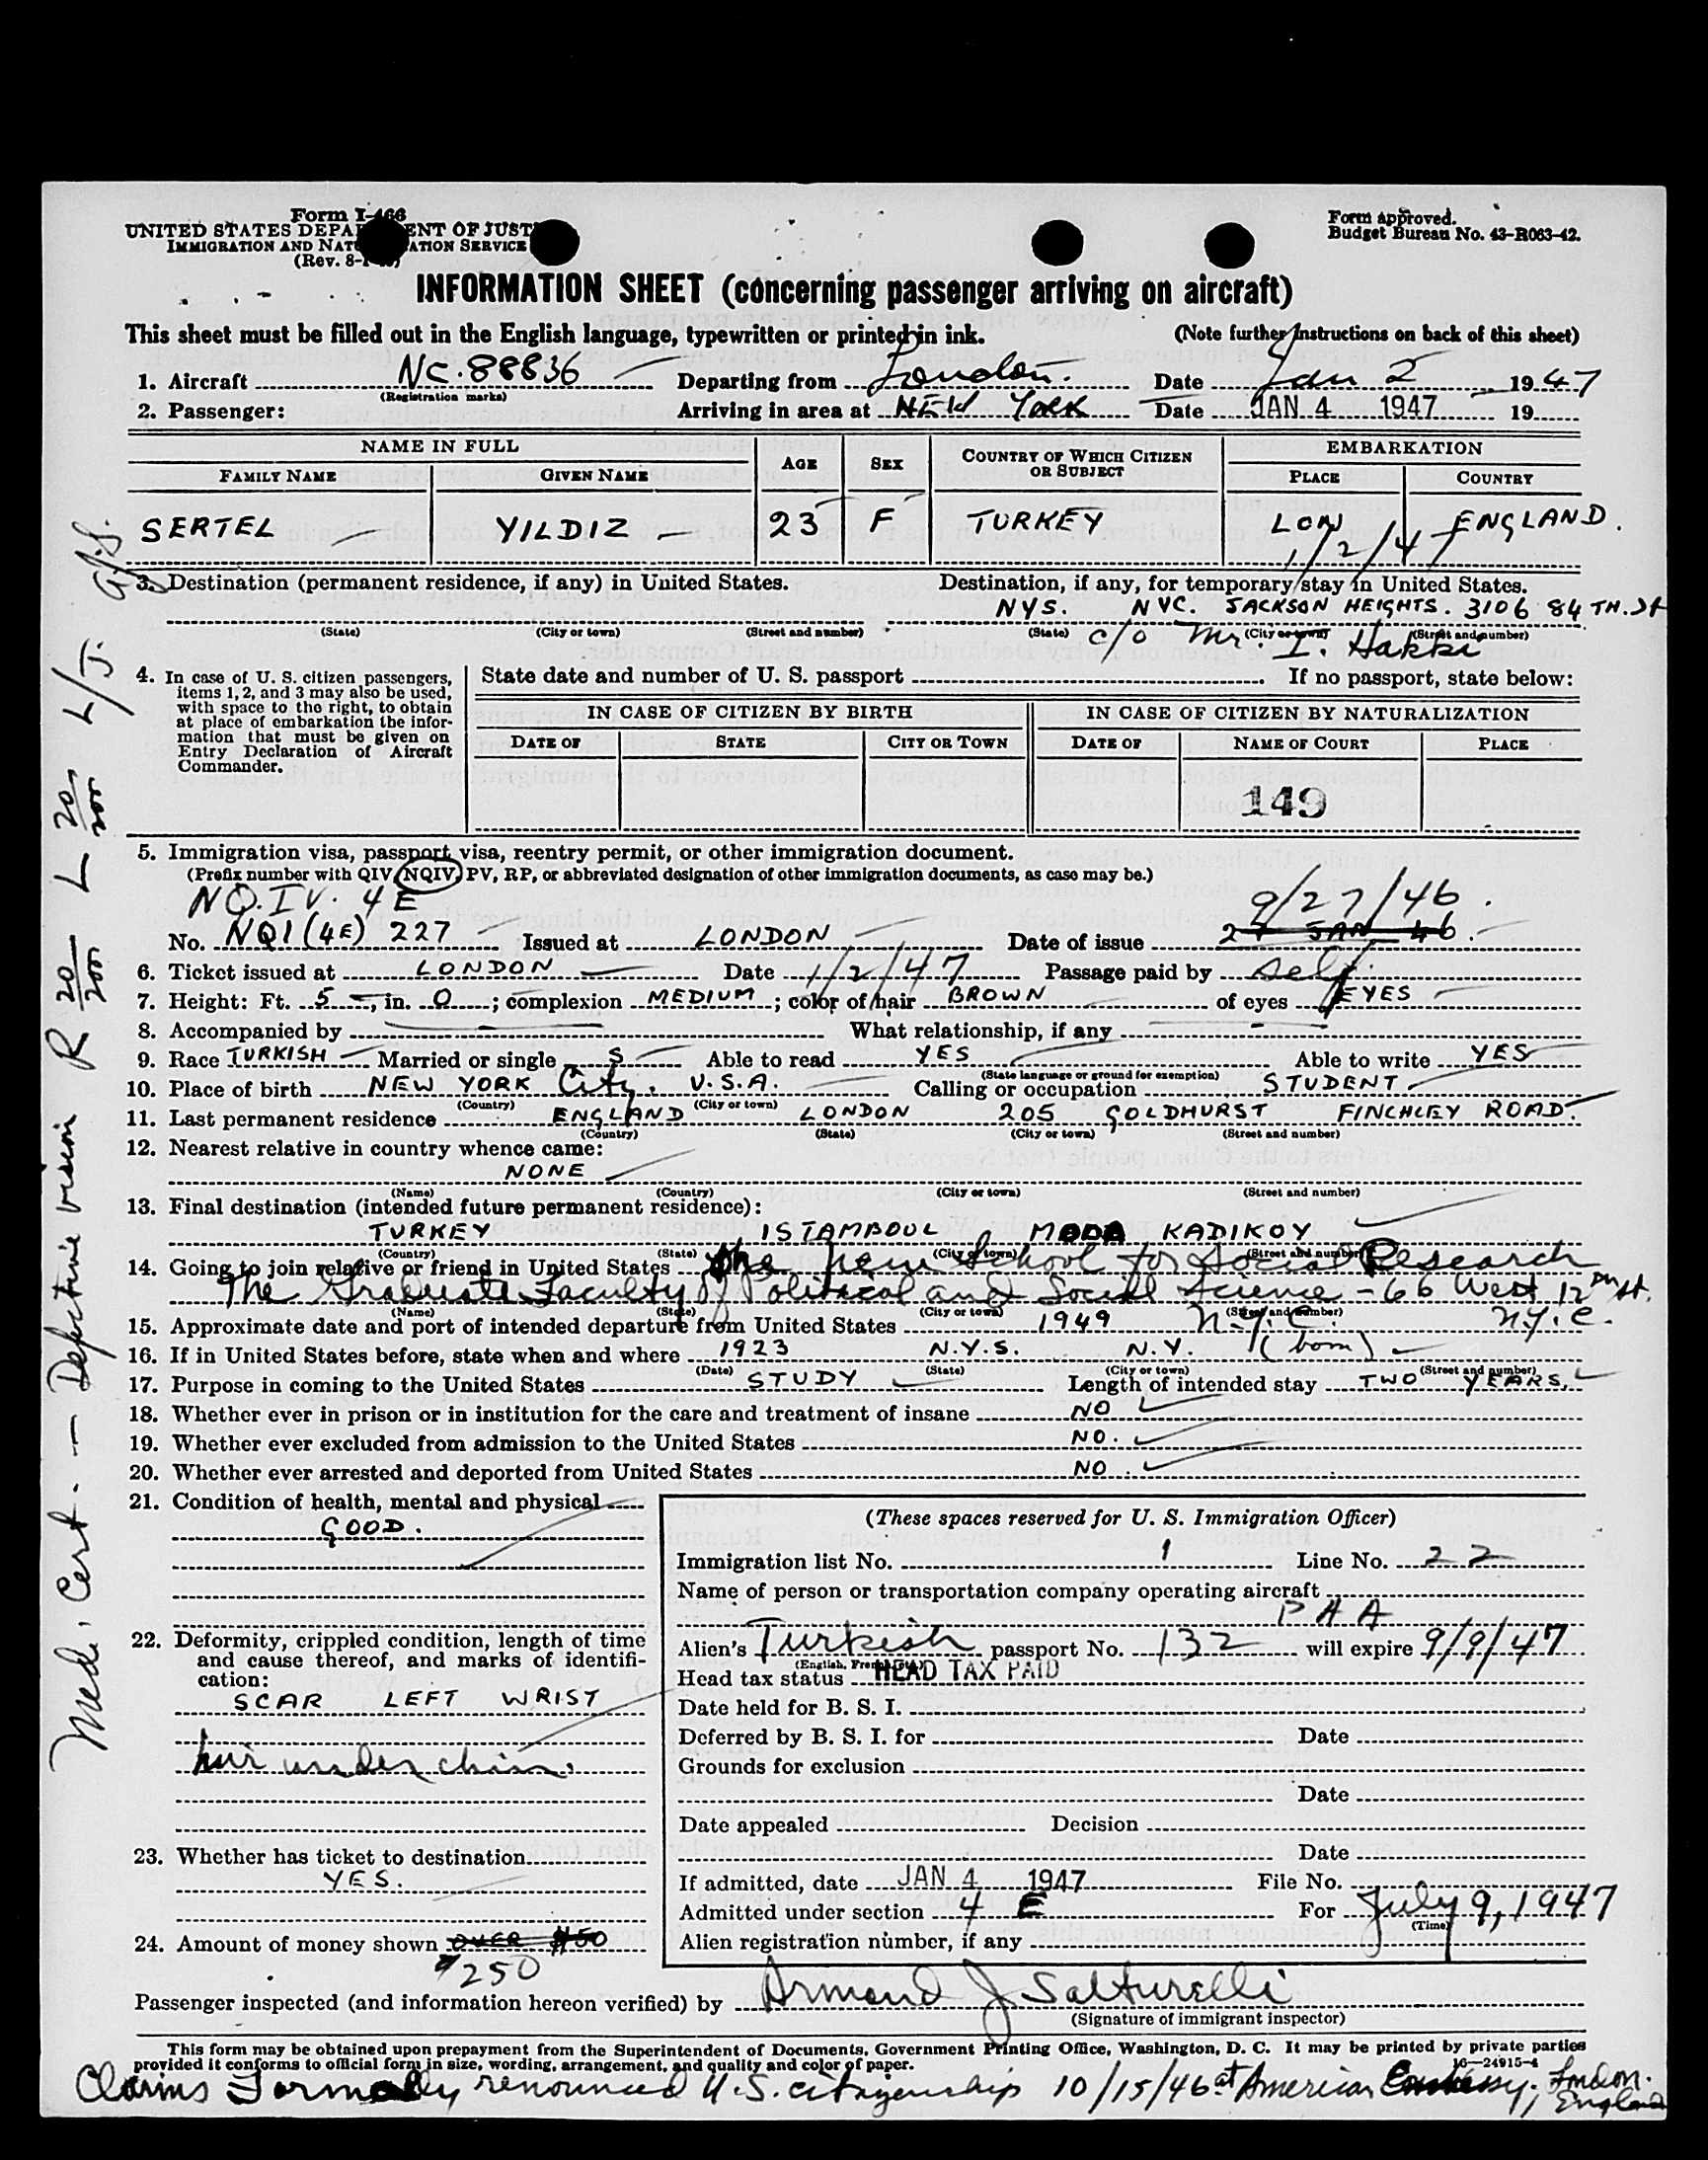 Form I-466
UNITED STATES DEPA ENT OF JUST
IMMIGRATION AND NAT ATION SERVICE
(Rev. 8-
Form approved.
Budget Bureau No. 43-R063-42.
INFORMATION SHEET (concerning passenger arriving on aircraft)
This sheet must be filled out in the English language, typewritten or printed in ink. (Note further instructions on back of this sheet)
1. Aircraft NC.88836 Departing from London. Date Jan 2 1947
(Registration marks)
2. Passenger: Arriving in area at NEW YORK Date JAN 4 1947 19
NAME IN FULL AGE SEX COUNTRY OF WHICH CITIZEN OR SUBJECT EMBARKATION
FAMILY NAME GIVEN NAME PLACE COUNTRY
SERTEL YILDIZ 23 F TURKEY LON ENGLAND.
1/2/47
3. Destination (permanent residence, if any) in United States. Destination, if any, for temporary stay in United States.
NYS. NYC. JACKSON HEIGHTS. 3106 84 TH. St
(State) (City or town) (Street and number) (State) (City or town) (Street and number)
c/o Mr. I. Hakki
4. In case of U. S. citizen passengers, items 1, 2, and 3 may also be used, with space to the right, to obtain at place of embarkation the information that must be given on Entry Declaration of Aircraft Commander.
State date and number of U. S. passport If no passport, state below:
IN CASE OF CITIZEN BY BIRTH IN CASE OF CITIZEN BY NATURALIZATION
DATE OF STATE CITY OR TOWN DATE OF NAME OF COURT PLACE
149
5. Immigration visa, passport visa, reentry permit, or other immigration document.
(Prefix number with QIV, NQIV, PV, RP, or abbreviated designation of other immigration documents, as case may be.)
NQ.IV. 4E 9/27/46.
No. NQI(4E) 227 Issued at LONDON Date of issue 27 JAN 46.
6. Ticket issued at LONDON Date 1/2/47 Passage paid by self.
7. Height: Ft. 5, in. 0; complexion MEDIUM; color of hair BROWN of eyes EYES
8. Accompanied by What relationship, if any
9. Race TURKISH Married or single S Able to read YES Able to write YES
(State language or ground for exemption)
10. Place of birth NEW YORK City. U.S.A. Calling or occupation STUDENT.
(Country) (City or town)
11. Last permanent residence ENGLAND LONDON 205 GOLDHURST FINCHLEY ROAD.
(Country) (State) (City or town) (Street and number)
12. Nearest relative in country whence came:
NONE
(Name) (Country) (City or town) (Street and number)
13. Final destination (intended future permanent residence):
TURKEY ISTAMBOUL MODA KADIKOY
(Country) (State) (City or town) (Street and number)
14. Going to join relative or friend in United States The New School for Social Research
The Graduate Faculty of Political and Social Science - 66 West 12th St.
(Name) (State) (City or town) (Street and number)
15. Approximate date and port of intended departure from United States 1949 N.Y.C. N.Y.C.
16. If in United States before, state when and where 1923 N.Y.S. N.Y. (born)
(Date) (State) (City or town) (Street and number)
17. Purpose in coming to the United States STUDY Length of intended stay TWO YEARS.
18. Whether ever in prison or in institution for the care and treatment of insane NO
19. Whether ever excluded from admission to the United States NO.
20. Whether ever arrested and deported from United States NO.
21. Condition of health, mental and physical
GOOD.
22. Deformity, crippled condition, length of time and cause thereof, and marks of identification:
SCAR LEFT WRIST
under chin.
23. Whether has ticket to destination
YES.
24. Amount of money shown OVER $50
$250
(These spaces reserved for U. S. Immigration Officer)
Immigration list No. 1 Line No. 22
Name of person or transportation company operating aircraft
PAA
Alien's Turkish passport No. 132 will expire 9/9/47
Head tax status HEAD TAX PAID
Date held for B. S. I.
Deferred by B. S. I. for Date
Grounds for exclusion
Date
Date appealed Decision
Date
If admitted, date JAN 4 1947 File No.
Admitted under section 4 E For July 9, 1947
(Time)
Alien registration number, if any
Passenger inspected (and information hereon verified) by Armand J Salturelli
(Signature of immigrant inspector)
This form may be obtained upon prepayment from the Superintendent of Documents, Government Printing Office, Washington, D. C. It may be printed by private parties
provided it conforms to official form in size, wording, arrangement, and quality and color of paper. 16—24915-4
Claims Formally renounced U.S. citizenship 10/15/46 at American Embassy. London. England
Med. Cert. - Defective vision R 20/200 L 20/200 L/J.